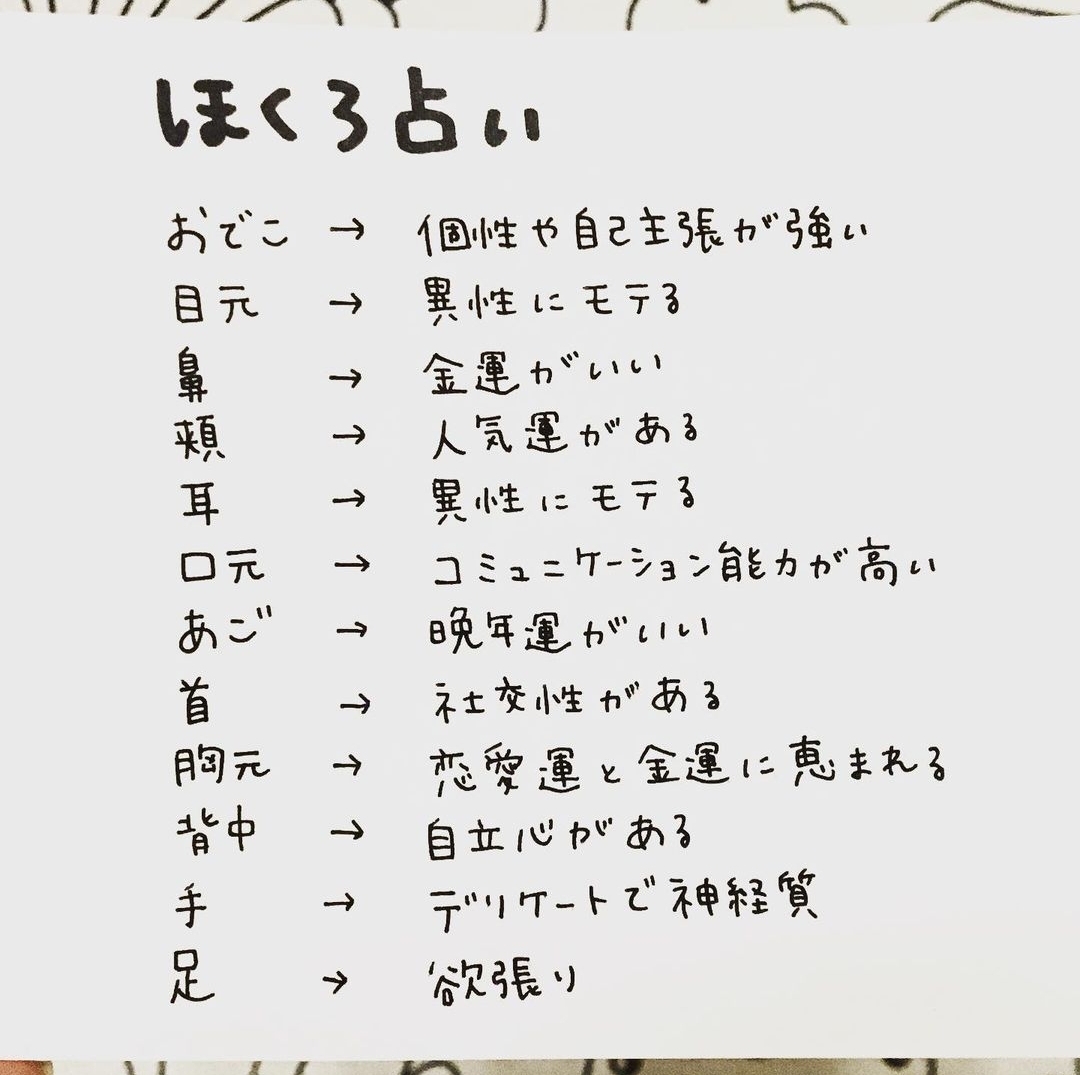 ほくろ占い
おでこ → 個性や自己主張が強い
目元 → 異性にモテる
鼻 → 金運がいい
頬 → 人気運がある
耳 → 異性にモテる
口元 → コミュニケーション能力が高い
あご → 晩年運がいい
首 → 社交性がある
胸元 → 恋愛運と金運に恵まれる
背中 → 自立心がある
手 → デリケートで神経質
足 → 欲張り